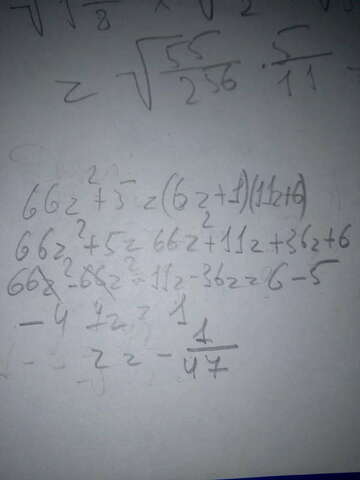 8
= √55/256 · 5/11
66z² + 5 = (6z+1)(11z+6)
66z² + 5 = 66z² + 11z + 36z + 6
66z² - 66z² - 11z - 36z = 6 - 5
- 47z = 1
z = - 1/47